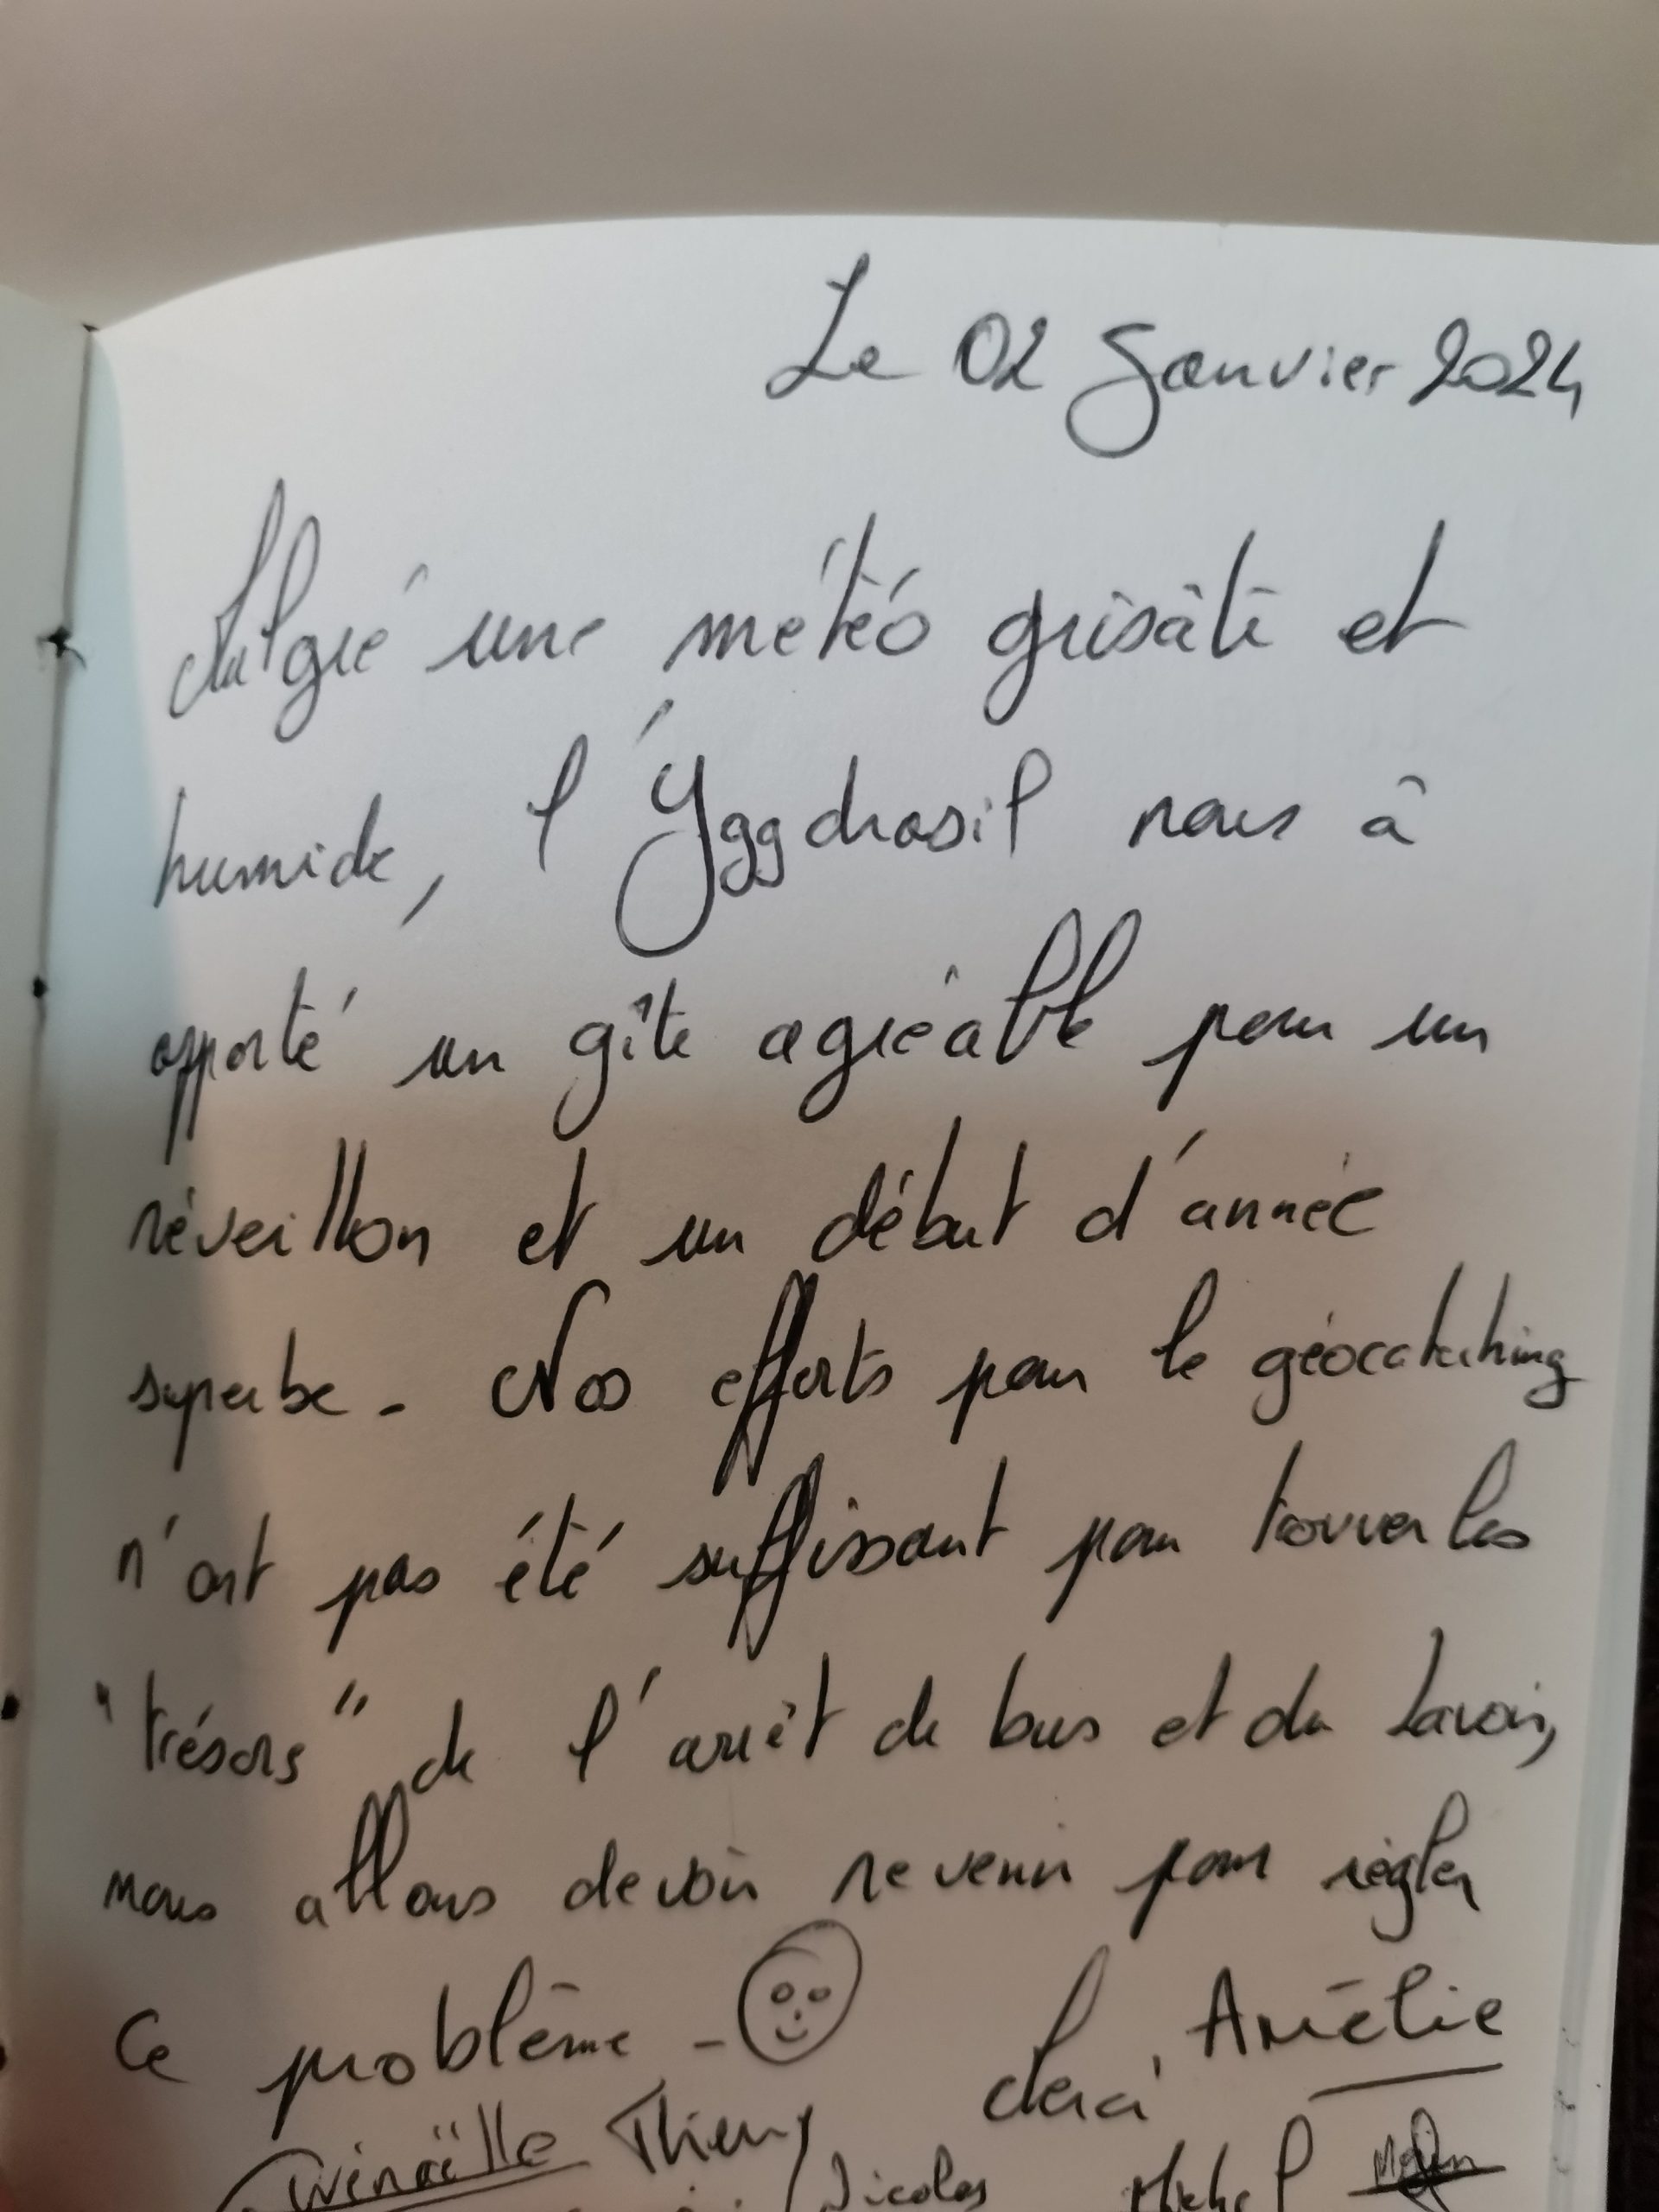 Le 02 Janvier 2024
Malgré une météo grisâtre et
humide, l'Yggdrasil nous à
apporté un gîte agréable pour un
réveillon et un début d'année
superbe. Nos efforts pour le géocataching
n'ont pas été suffissant pour trouver les
"trésors" de l'arrêt de bus et du Lavoir,
nous allons devoir revenir pour régler
ce problème.
Amélie
Gwénaëlle Thierry
Nicolas Michel